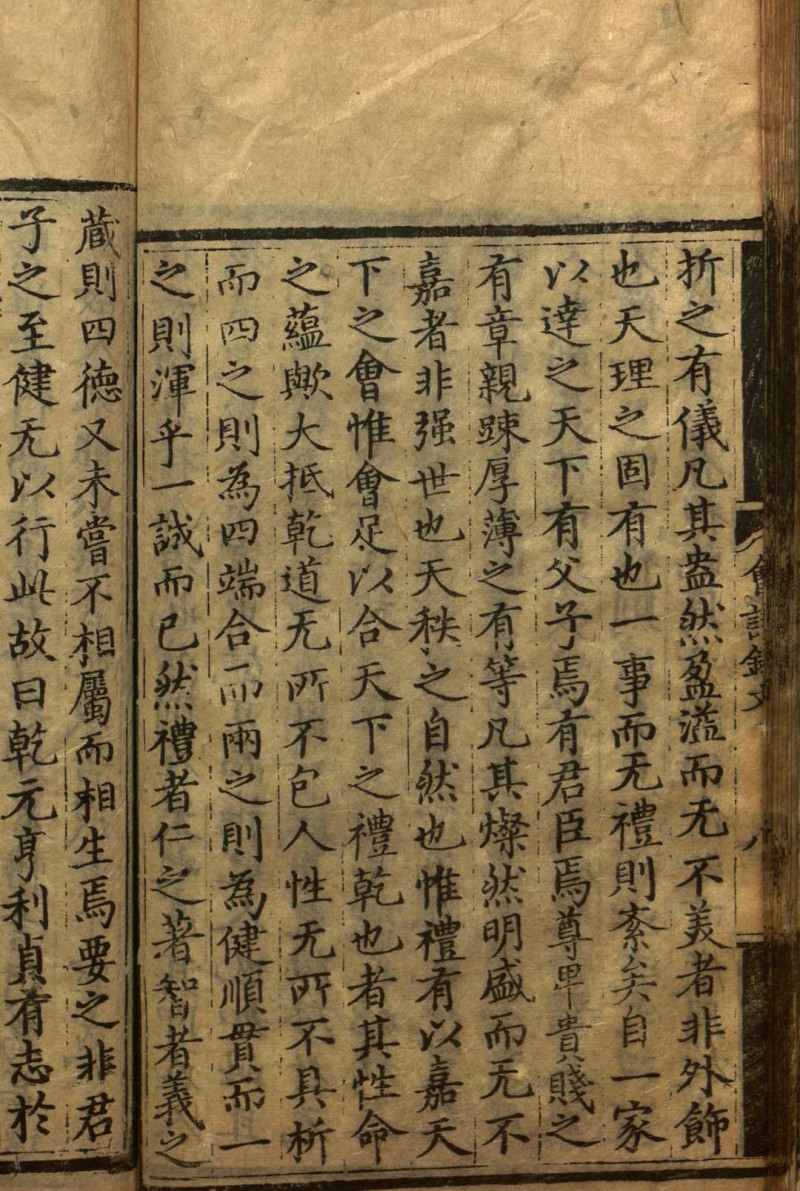 折之有儀凡其盎然盈溢而无不美者非外飾
也天理之固有也一事而无禮則紊矣自一家
以達之天下有父子焉有君臣焉尊卑貴賤之
有章親踈厚薄之有等凡其燦然明盛而无不
嘉者非强世也天秩之自然也惟禮有以嘉天
下之會惟會足以合天下之禮乾也者其性命
之蘊歟大抵乾道无所不包人性无所不具析
而四之則為四端合而兩之則為健順貫而一
之則渾乎一誠而已然禮者仁之著智者義之
蔵則四德又未嘗不相屬而相生焉要之非君
子之至健无以行此故曰乾元亨利貞有志於